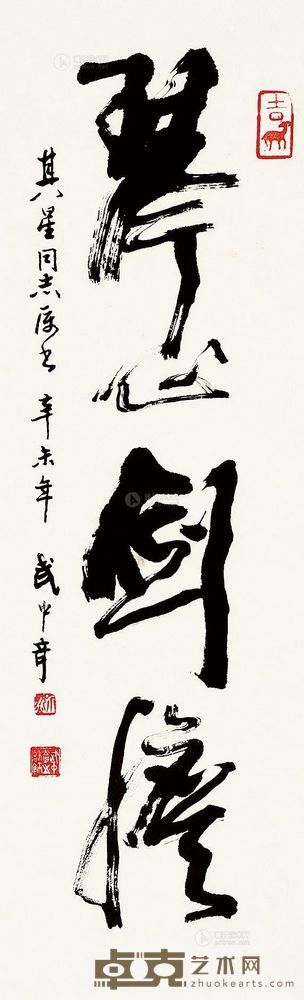 琴心剑胆
其星同志属书 辛未年 武中奇
吉
卓克艺术网
www.zhuokearts.com